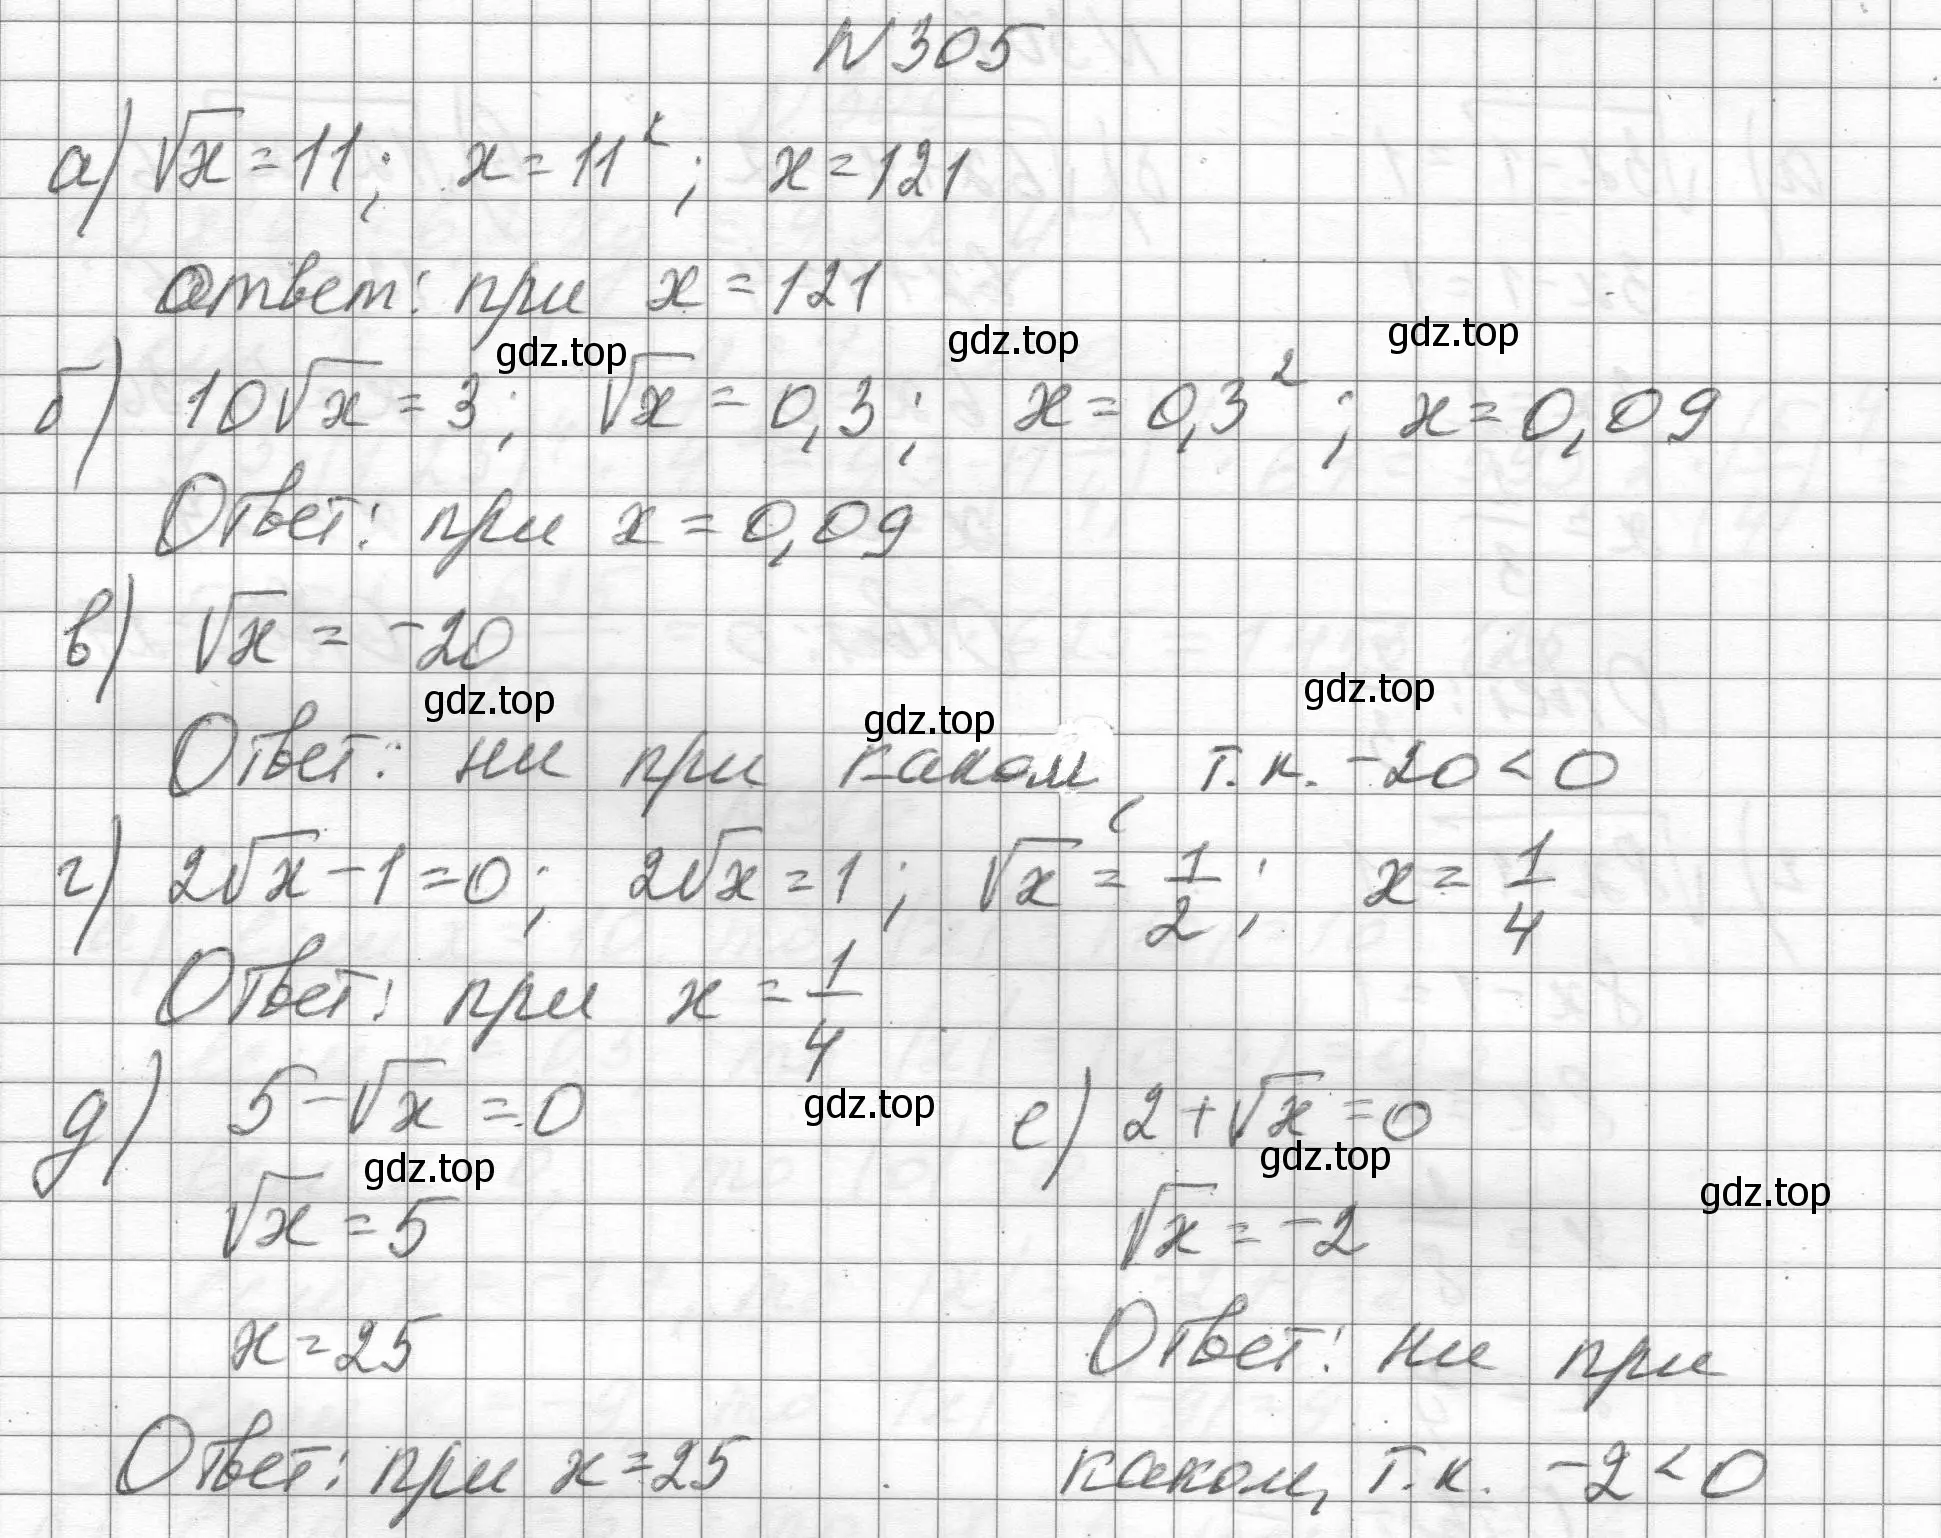 N305
а) √x = 11; x = 11²; x = 121
Ответ: при x = 121
gdz.top gdz.top gdz.top
б) 10√x = 3; √x = 0,3; x = 0,3²; x = 0,09
Ответ: при x = 0,09
в) √x = -20
gdz.top gdz.top gdz.top
Ответ: ни при каком, т.к. -20 < 0
г) 2√x - 1 = 0; 2√x = 1; √x = 1/2; x = 1/4
Ответ: при x = 1/4
д) 5 - √x = 0
gdz.top
gdz.top
√x = 5
x = 25
Ответ: при x = 25
е) 2 + √x = 0
gdz.top
gdz.top
√x = -2
Ответ: ни при
каком, т.к. -2 < 0